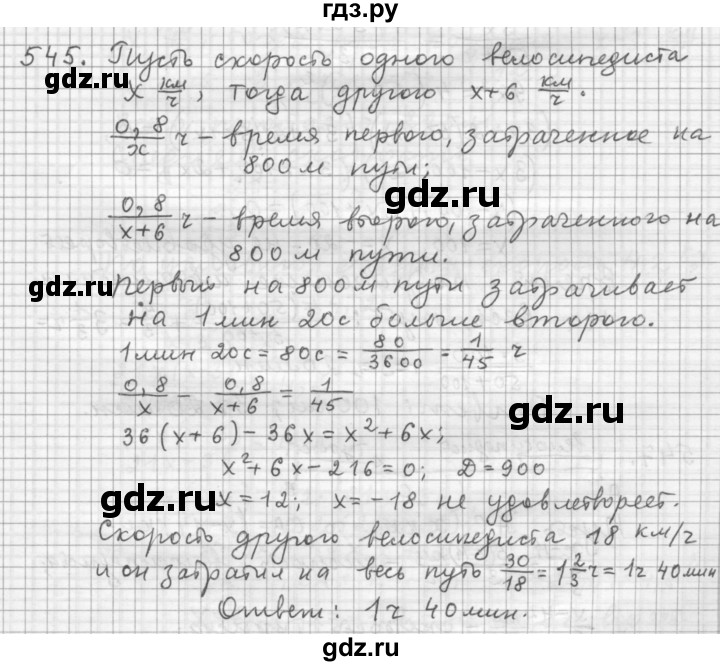 гдз.ру
545. Пусть скорость одного велосипедиста
x км/ч, тогда другого x+6 км/ч.
0,8/x ч – время первого, затраченное на
800 м пути;
гдз.ру
0,8/x+6 ч – время второго, затраченного на
800 м пути.
гдз.ру
Первый на 800 м пути затрачивает
на 1 мин 20с больше второго.
1 мин 20с = 80с = 80/3600 = 1/45 ч
0,8/x – 0,8/x+6 = 1/45
гдз.ру
36(x+6) – 36x = x²+6x;
x²+6x–216=0; D=900
гдз.ру
x=12; x=–18 не удовлетворяет.
Скорость другого велосипедиста 18 км/ч
и он затратил на весь путь 30/18 = 1 2/3 ч = 1ч 40мин
гдз.ру
Ответ: 1ч 40мин.
гдз.ру